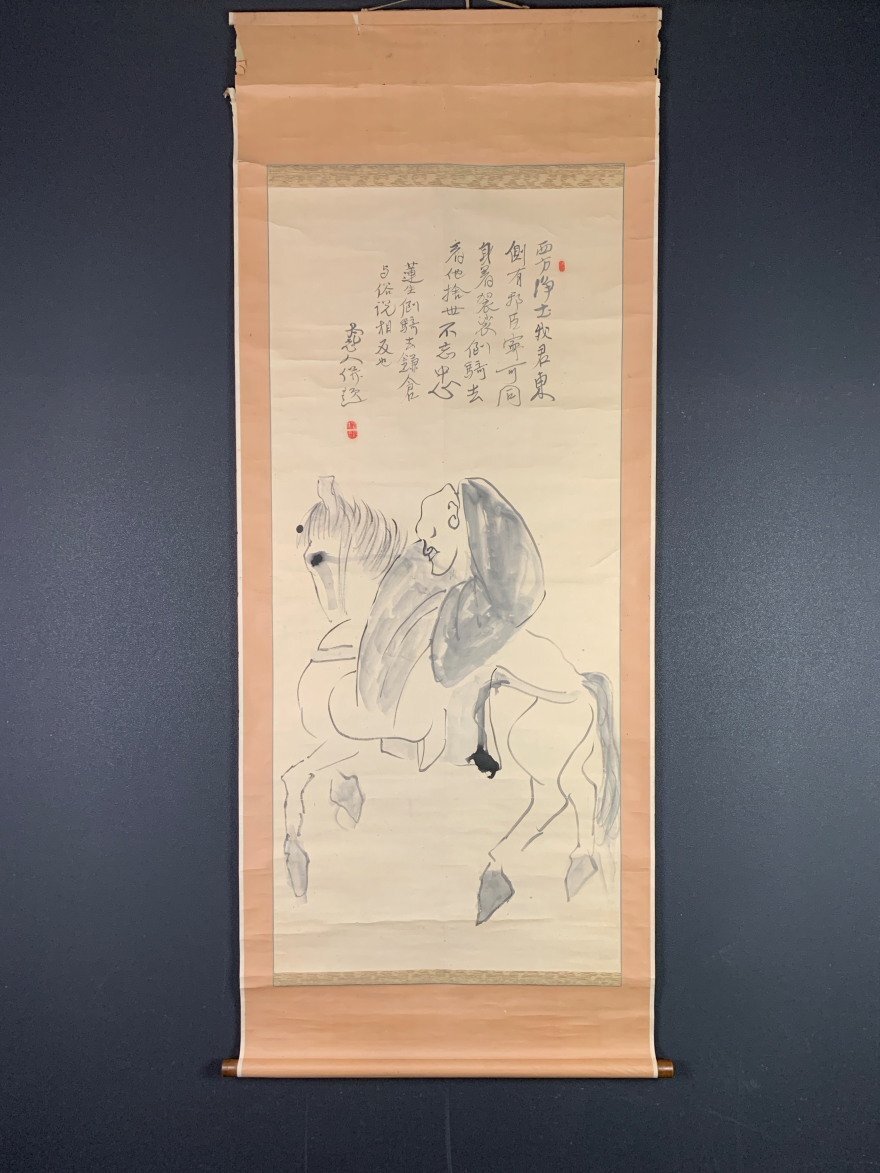 西方浄土我君東
側有邦臣寧可同
身着袈裟倒騎去
看他捨世不忘忠
蓮生倒騎去鎌倉
与俗説相反也
人併題